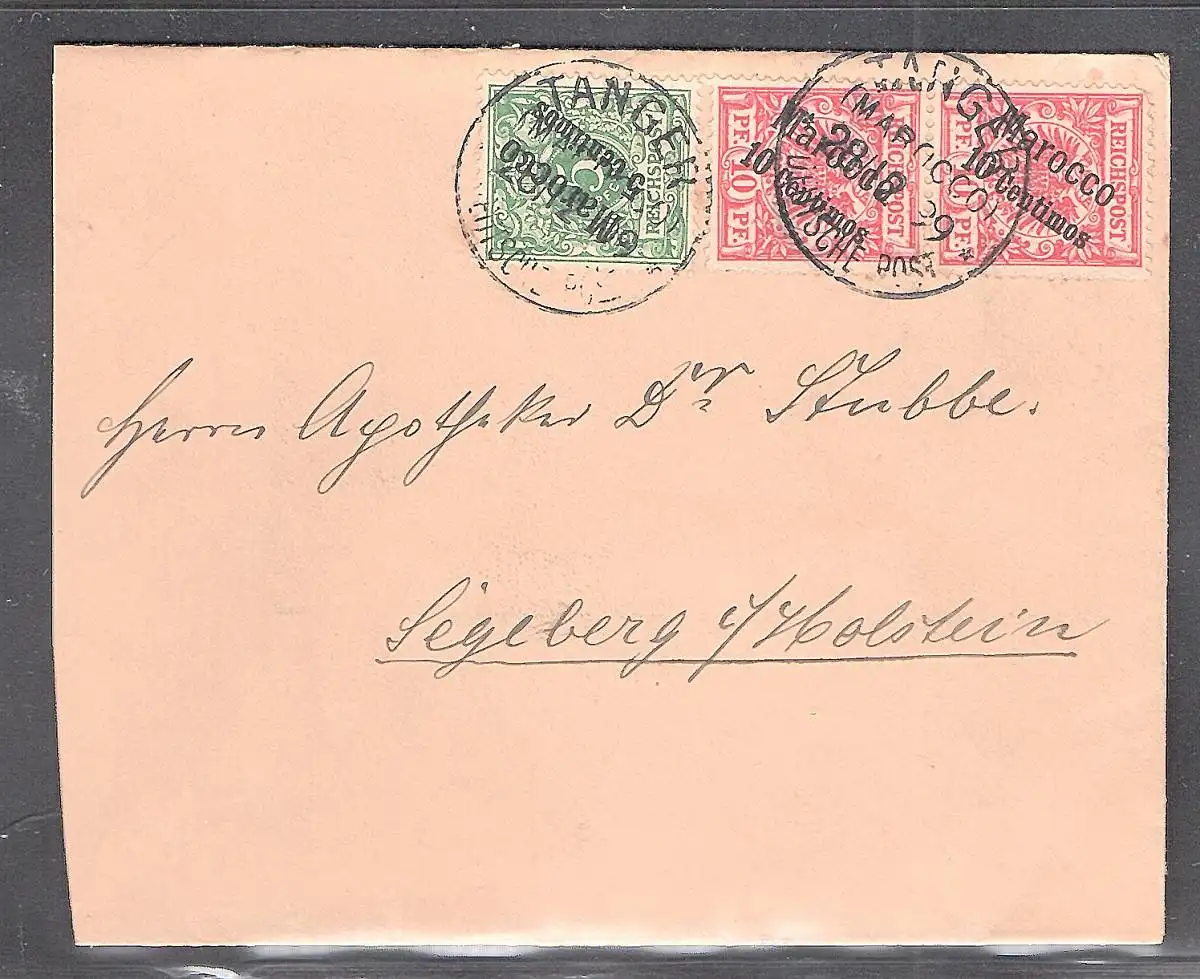 TANGER
DEUTSCHE POST
5
REICHSPOST
Marocco
5 Centimos
TANGER
(MAROCCO)
28 12 99
DEUTSCHE POST *
10 PF.
REICHSPOST
Marocco
10 Centimos
PF.
REICHSPOST
10 PF.
Marocco
10 Centimos
Herrn Apotheker Dr Stubbe.
Segeberg i/Holstein